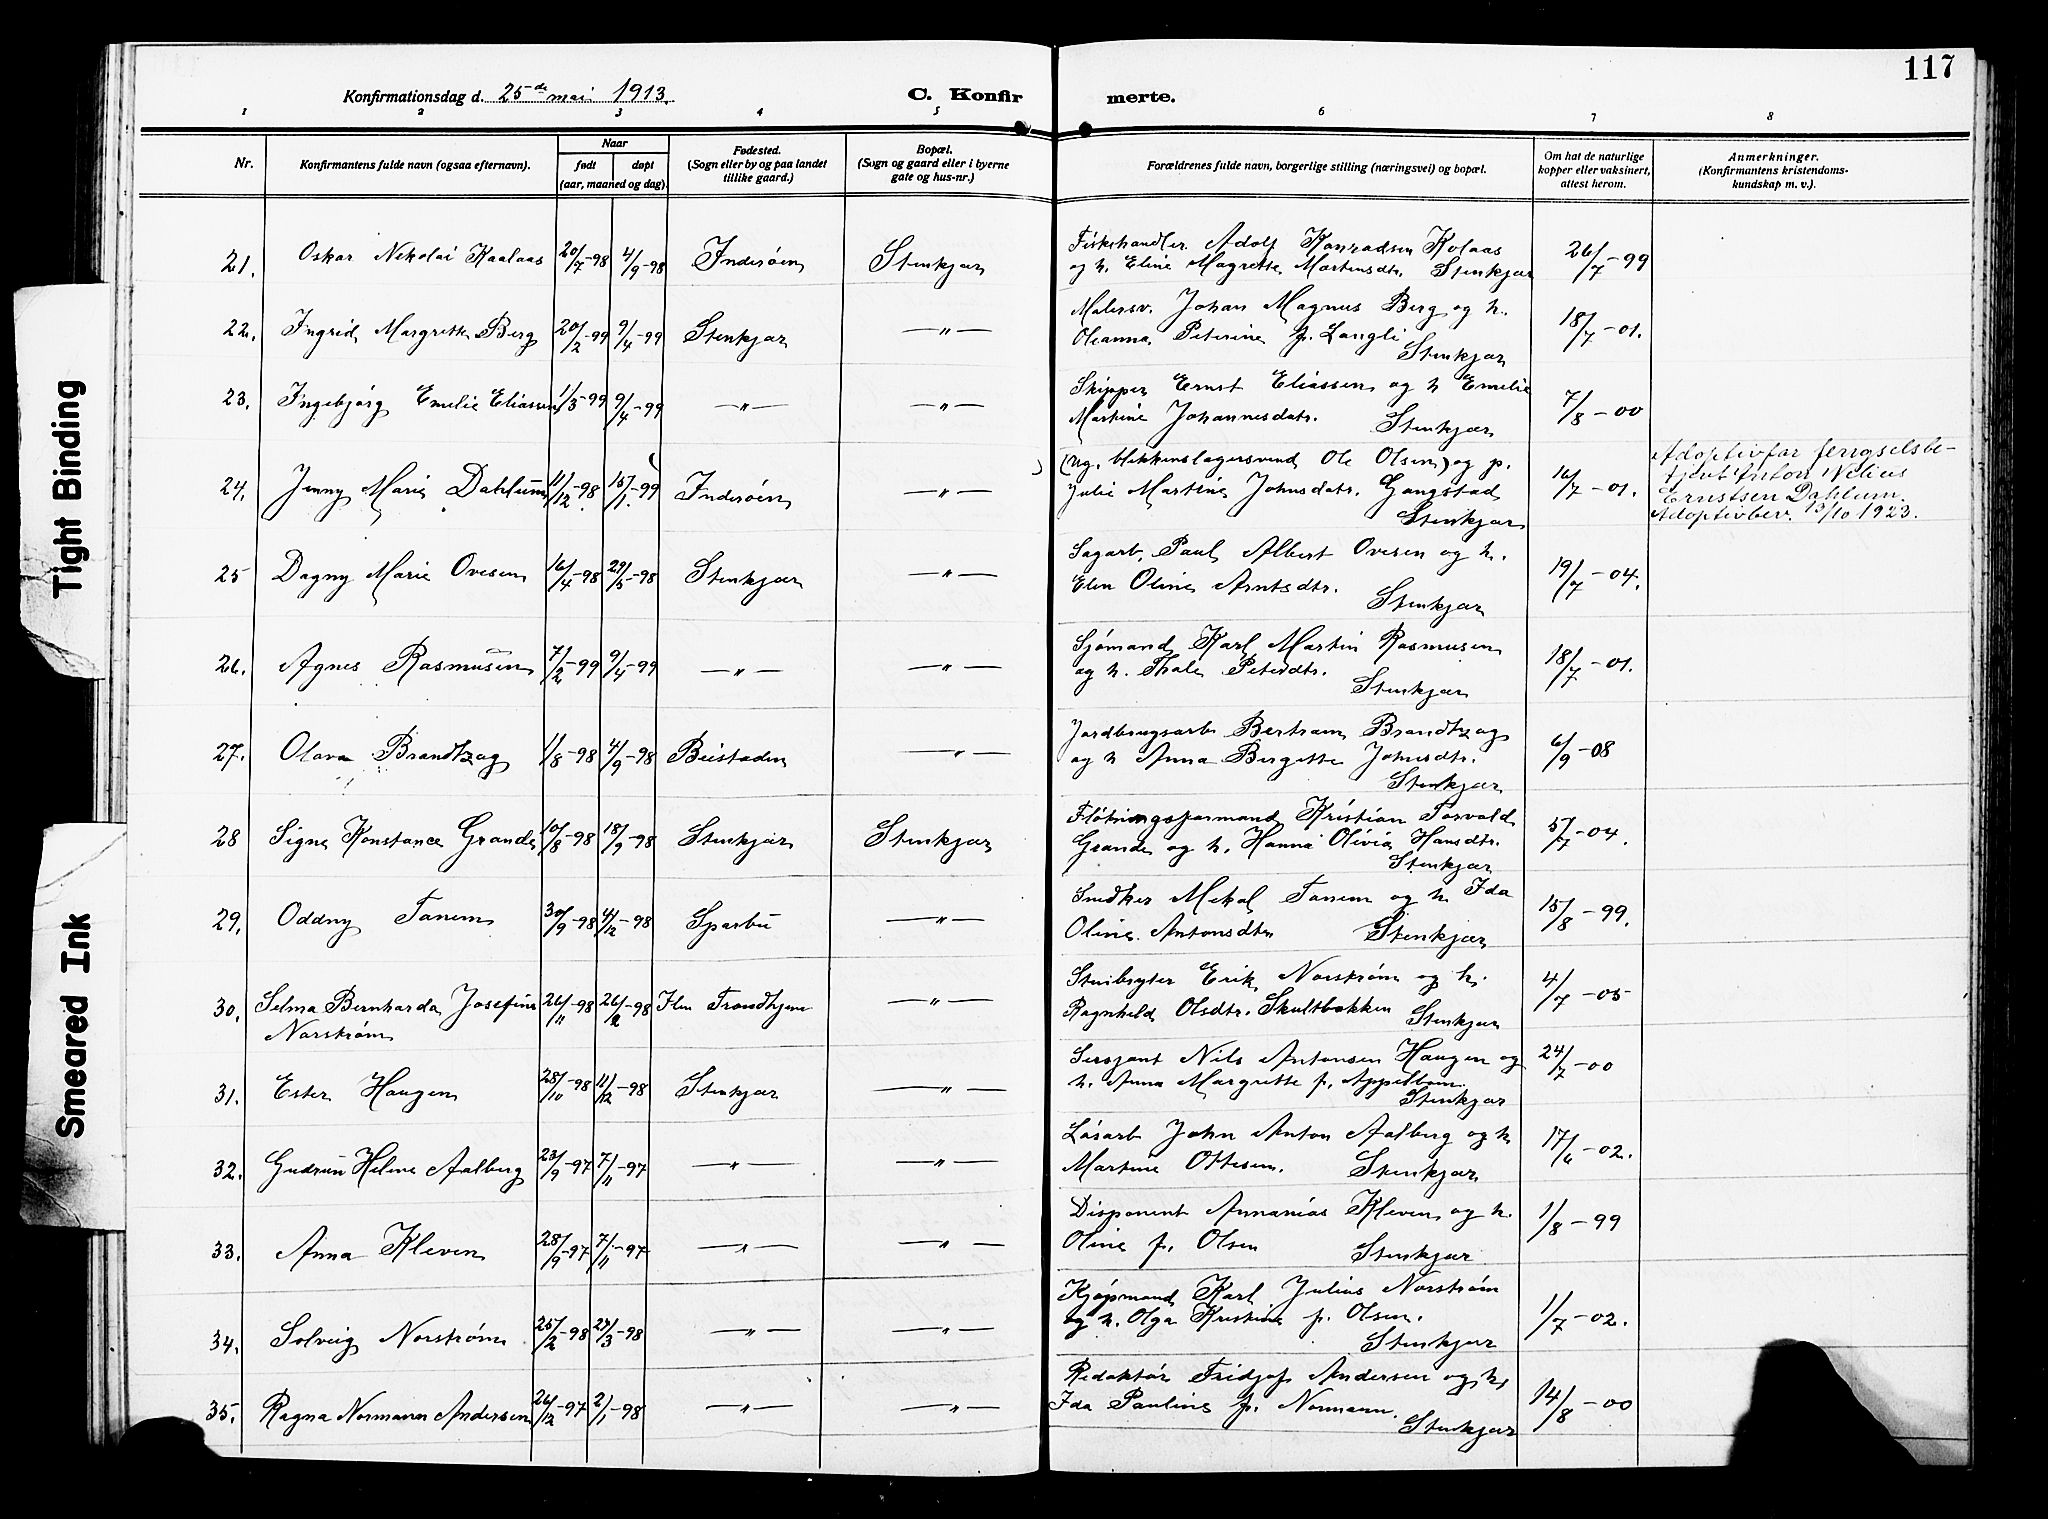 117
Konfirmationsdag d. 25de mai 1913.
C. Konfir merte.
1 2 3 4 5 6 7 8
Nr.
Konfirmantens fulde navn (ogsaa efternavn).
Naar
født døpt
(aar, maaned og dag).
Fødested.
(Sogn eller by og paa landet
tillike gaard.)
Bopæl.
(Sogn og gaard eller i byerne
gate og hus-nr.)
Forældrenes fulde navn, borgerlige stilling (næringsvei) og bopæl.
Om hat de naturlige
kopper eller vaksinert,
attest herom.
Anmerkninger.
(Konfirmantens kristendoms-
kundskap m. v.).
21. Oskar Nikolai Kaalaas 20/7-98 4/9-98 Inderøen Stenkjær Fiskehandler Adolf Konradsen Kolaas 26/7-99
og h. Eline Magrette Martensdtr. Stenkjær
22. Ingrid Margrethe Berg 20/2-99 9/4-99 Stenkjær —"— Malersv. Johan Magnus Berg og h. 18/7-01.
Oleanna Peterine f. Langli
Stenkjær
23. Ingebjørg Emelie Eliassen 1/3-99 9/4-99 —"— —"— Skipper Ernst Eliassen og h Emelie 7/8-00
Martine Johannesdatr. Stenkjær
24. Jenny Marie Dahlum 11/12-98 15/1-99 Inderøen —"— (Ug. blikkenslagersvend Ole Olsen) og p. 16/7-01.
Julie Martine Johnsdatr. Gangstad
Stenkjær
Adoptivfar fengselsbe-
tjent Anton Nelius
Ernstsen Dahlum.
Adoptivbev. 13/10 1923.
25 Dagny Marie Ovesen 16/4-98 29/5-98 Stenkjær —"— Sagarb. Paul Albert Ovesen og h. 19/7-04.
Elen Oline Arntsdtr.
Stenkjær
26. Agnes Rasmusen 7/2-99 9/4-99 —"— —"— Sjømand Karl Martin Rasmusen 18/7-01.
og h. Thale Petersdtr.
Stenkjær
27. Olava Brandtzæg 1/8-98 4/9-98 Beistaden —"— Jordbrugsarb Bertram Brandtzæg 6/9-08
og h Anna Bergitte Johnsdtr.
Stenkjær
28 Signe Konstance Grande 10/8-98 18/9-98 Stenkjær Stenkjær Fløtningsformand Kristian Torvald 5/7-04.
Grande og h. Hanna Olivia Hansdtr.
Stenkjær
29. Oddny Tanem 30/9-98 4/12-98 Sparbu —"— Snedker Mekal Tanem og h. Ida 15/8-99.
Oline Antonsdtr Stenkjær
30. Selma Bernharda Josefine 26/11-98 26/12-98 Ilen Trondhjem —"— Stenbryter Erik Norstrøm og h. 4/7-05
Norstrøm Ragnhild Olsdtr. Skultbækken Stenkjær
31. Ester Haugen 28/10-98 11/12-98 Stenkjær —"— Sersjant Nils Antonsen Haugen og 24/7-00
h. Anna Margrette f. Appelbom.
Stenkjær
32. Gudrun Helene Aalberg 23/9-97 7/11-97 —"— —"— Løsarb John Anton Aalberg og h 17/6-02.
Martine Ottesen. Stenkjær
33. Anna Kleven 28/9-97 7/11-97 —"— —"— Disponent Annanias Kleven og h. 1/8-99
Oline f. Olsen Stenkjær
34. Solveig Norstrøm 25/2-98 27/3-98 —"— —"— Kjøpmand Karl Julius Norstrøm 1/7-02.
og h. Olga Kristine f. Olsen.
Stenkjær
35. Ragna Normann Andersen 26/12-97 2/1-98 —"— —"— Redaktør Fridjof Andersen og h. 14/8-00
Ida Pauline f. Normann.
Stenkjær
Tight Binding
Smeared Ink